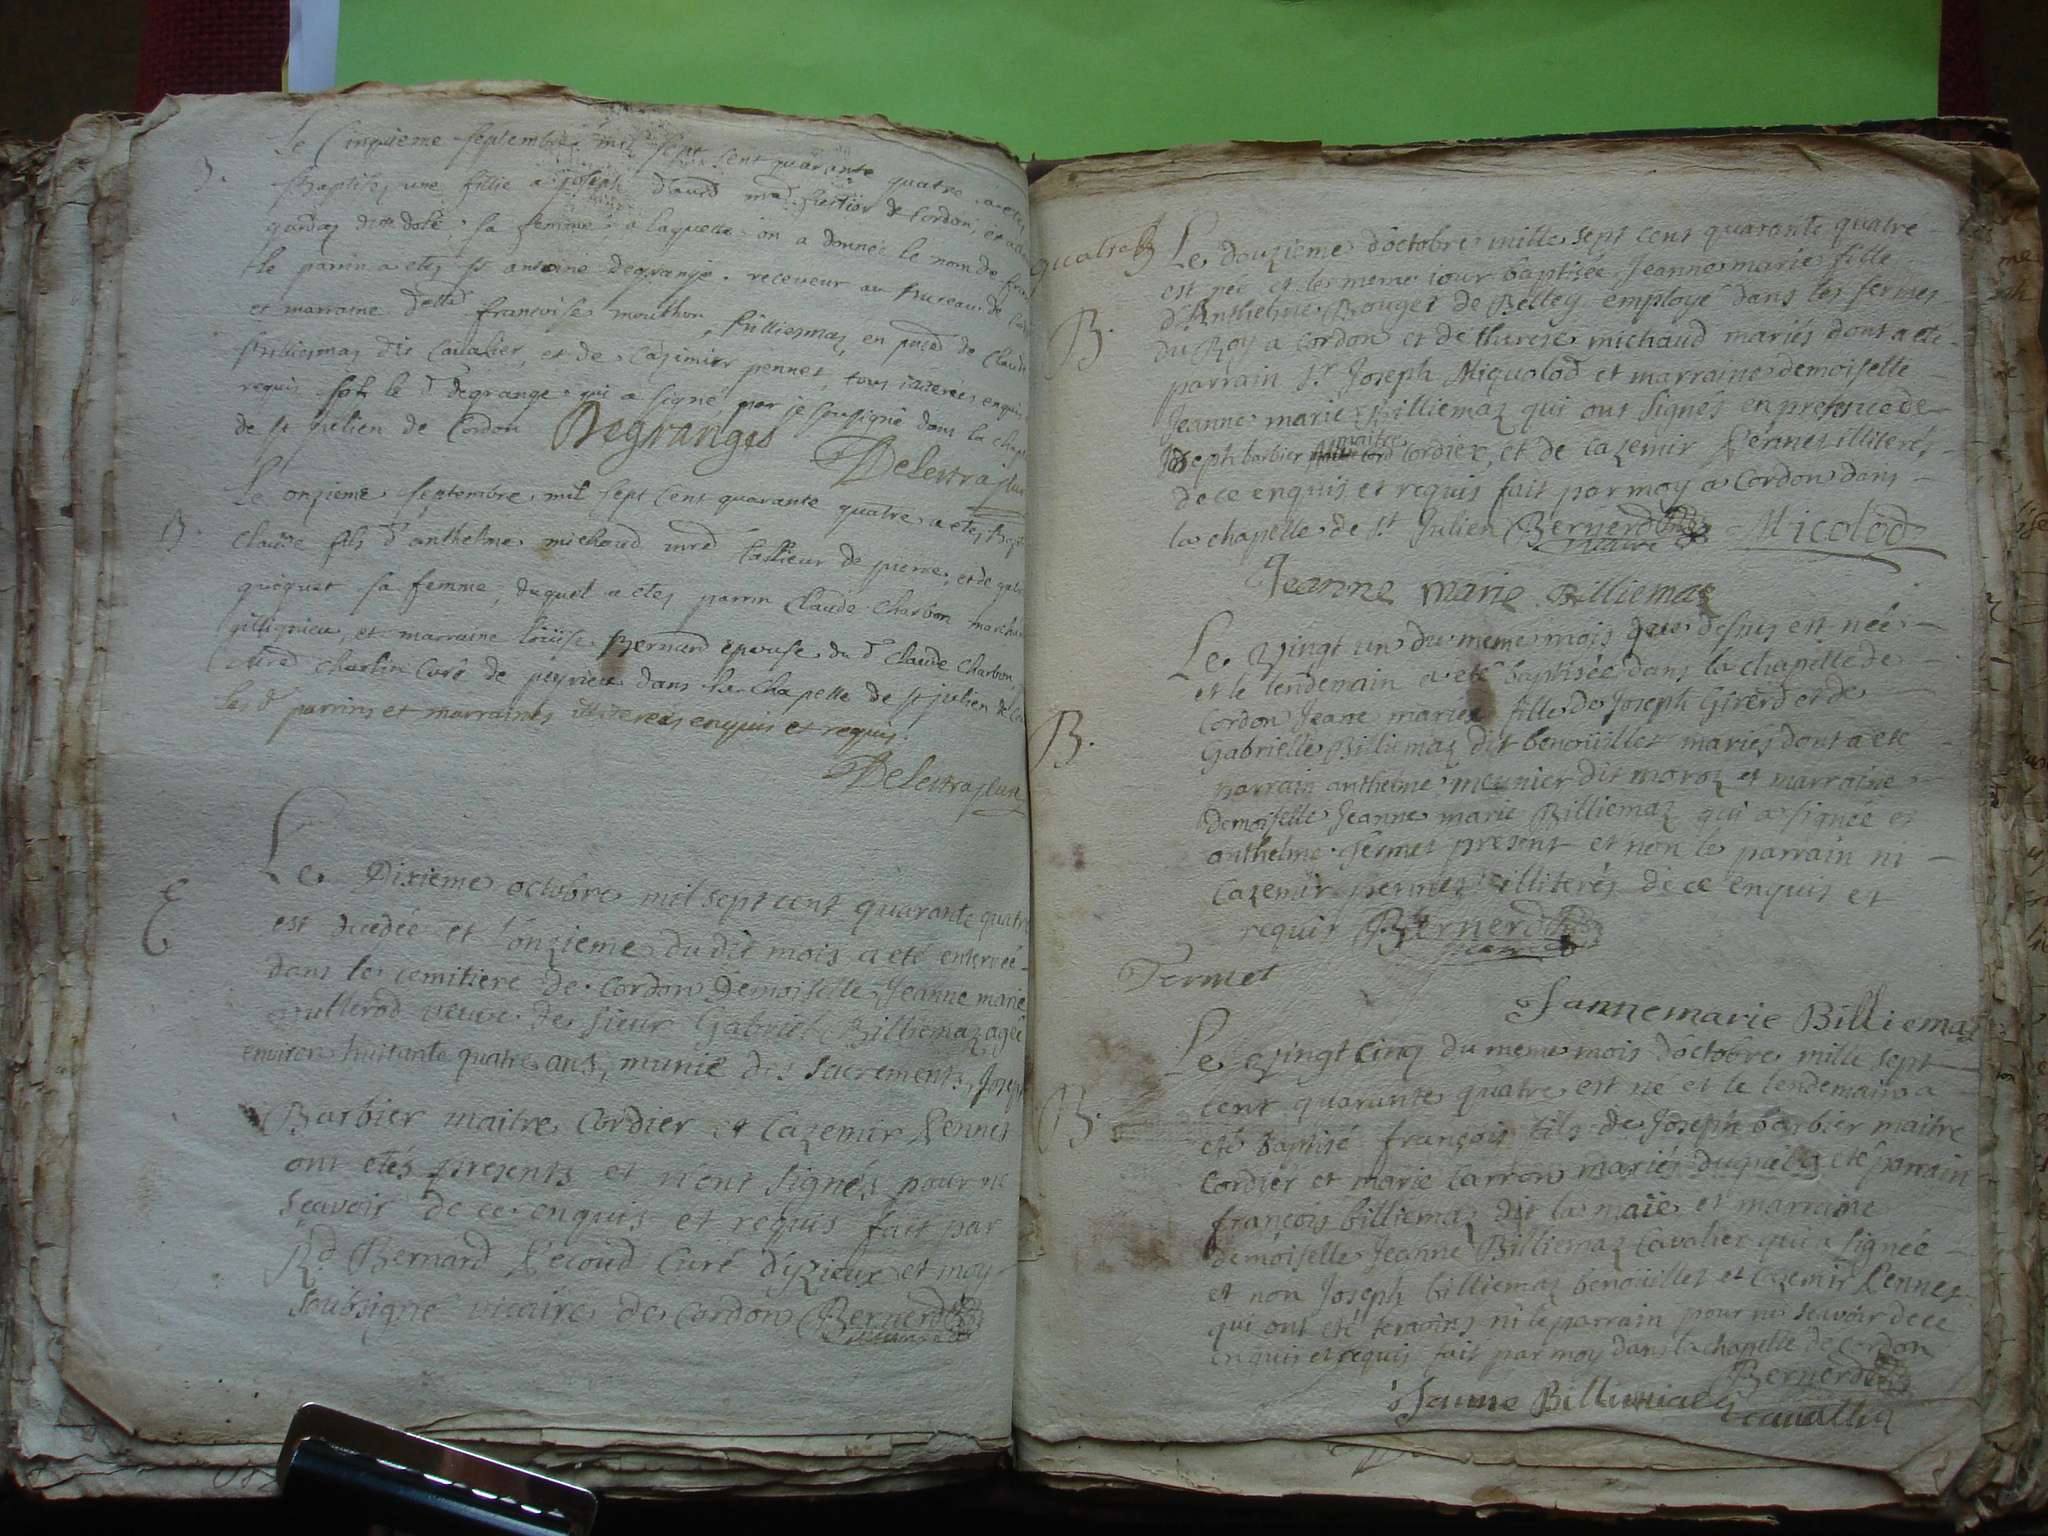 Le Cinquieme septembre mil sept cent quarante quatre a etes
B.
Baptisez une fillie a joseph david de Cordon, et
sa femme, a laquelle on a donnée le nom de
le parrin a etez sr antoine degrange receveur au bureau de
et marraine françoise mouthon, Billiemaz, en de Claude
Billiemaz dit Cavalier, et de Cazimier pennet, tous
requis le degrange qui a signé, par je sousigné dans la
de st julien de Cordon Degranges
Delestraz
Le onzieme septembre mil sept cent quarante quatre a etez
B.
Claude fils d'anthelme michaud tallieur de pierre, et de
guiguet sa femme, duquel a etez parrin Claude Charbon
et marraine loüise Bernard epouse du d Claude Charbon,
charlin Curé de peyrieu dans la Chapelle de st julien de
les d parrins et marraines illiterez enquis et requis.
Delestraz
E
Le Dixieme octobre mil sept cent quarante quatre
est decedée et l'onzieme du dit mois a eté enterrée
dans le cemitiere de Cordon Demoiselle Jeanne marie
veuve de sieur Gabriel Billiemaz agée
environ huitante quatre ans, munie des sacrements, Joseph
Barbier maitre Cordier et Cazemir Pennet
ont etés presents et n'ont signés pour ne
scavoir de ce enquis et requis fait par
Rd Bernard Curé d'izieux et moy
soubsigné vicaire de Cordon Bernerd
quatre
Le douzieme d'octobre mille sept cent quarante quatre
est née et le meme jour baptisée Jeanne marie fille
B.
d'Anthelme Rouget de Belley employé dans les fermes
du Roy a Cordon et de therese michaud mariés dont a eté
parrain sr Joseph Miqualod et marraine demoiselle
Jeanne marie Billiemaz qui ont signés en presence de
maitre
Joseph barbier cordier, et de Cazemir Pennet illiterés
de ce enquis et requis fait par moy a Cordon dans
la chapelle de st Julien Bernerd vicaire Micolod
Jeanne marie Billiemaz
Le vingt un du meme mois que dessus est née
et le lendemain a eté baptisée dans la chapelle de
Cordon Jeane marie fille de Joseph Girerd et de
B.
Gabrielle Billiemaz dit benoüillet mariés dont a eté
parrain anthelme meunier dit maroz et marraine
demoiselle Jeanne marie Billiemaz qui a signée et
anthelme fermet present et non le parrain ni
Cazemir pennet illiterés de ce enquis et
requis Bernerd vicaire
Fermet
Jannemarie Billiemaz
Le vingt cinq du meme mois d'octobre mille sept
cent quarante quatre est né et le lendemain a
B.
eté baptisé françois fils de Joseph barbier maitre
Cordier et marie Carron mariés duquel a eté parrain
françois billiemaz dit la maïe et marraine
demoiselle Jeanne Billiemaz Cavalier qui a signée
et non Joseph billiemaz benoüillet et Cazemir Pennet
qui ont eté temoins ni le parrain pour ne scavoir de ce
enquis et requis fait par moy dans la chapelle de Cordon
Bernerd
Janne Billiemaz
cavallier